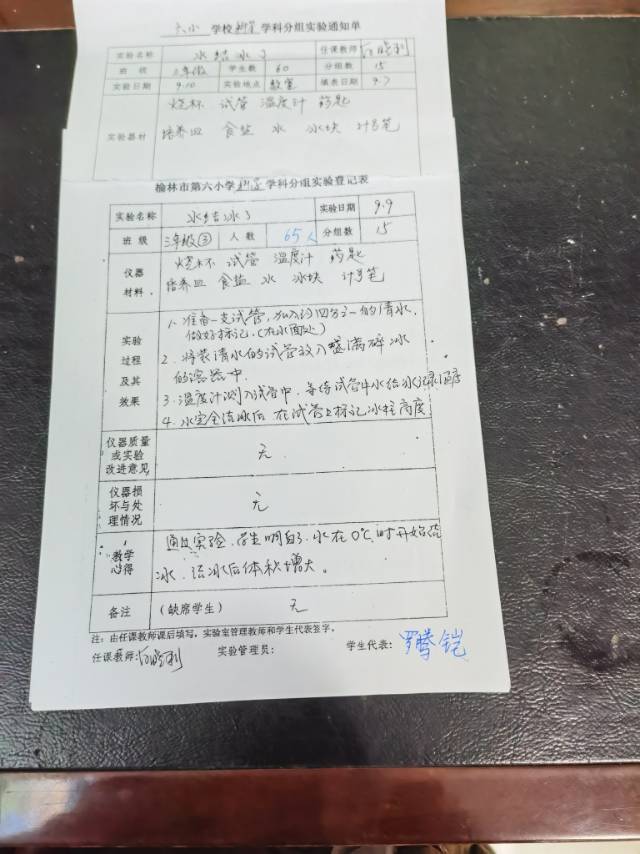 六小 学校科学学科分组实验通知单
实验名称 水结冰了 任课教师
班级 三年级 学生数 60 分组数 15
实验日期 9.10 实验地点 教室 填表日期 9.7
实验器材 烧杯 试管 温度计 药匙
培养皿 食盐 水 冰块 计号笔
榆林市第六小学科学学科分组实验登记表
实验名称 水结冰了 实验日期 9.9
班级 三年级③ 人数 65人 分组数 15
仪器材料 烧杯 试管 温度计 药匙
培养皿 食盐 水 冰块 计号笔
实验过程及其效果
1、准备一支试管,加入约四分之一的清水,
做好标记。(在水面处)
2、将装清水的试管放入盛满碎冰
的容器中.
3、温度计测入试管中,等待试管中水结冰记录温度
4、水完全结冰后 在试管上标记冰柱高度
仪器质量或实验改进意见 无
仪器损坏与处理情况 无
教学心得 通过实验,学生明白了水在0℃时开始结
冰,结冰后体积增大。
备注 (缺席学生) 无
注:由任课教师课后填写,实验室管理教师和学生代表签字。
任课教师: 实验管理员: 学生代表:罗腾铠